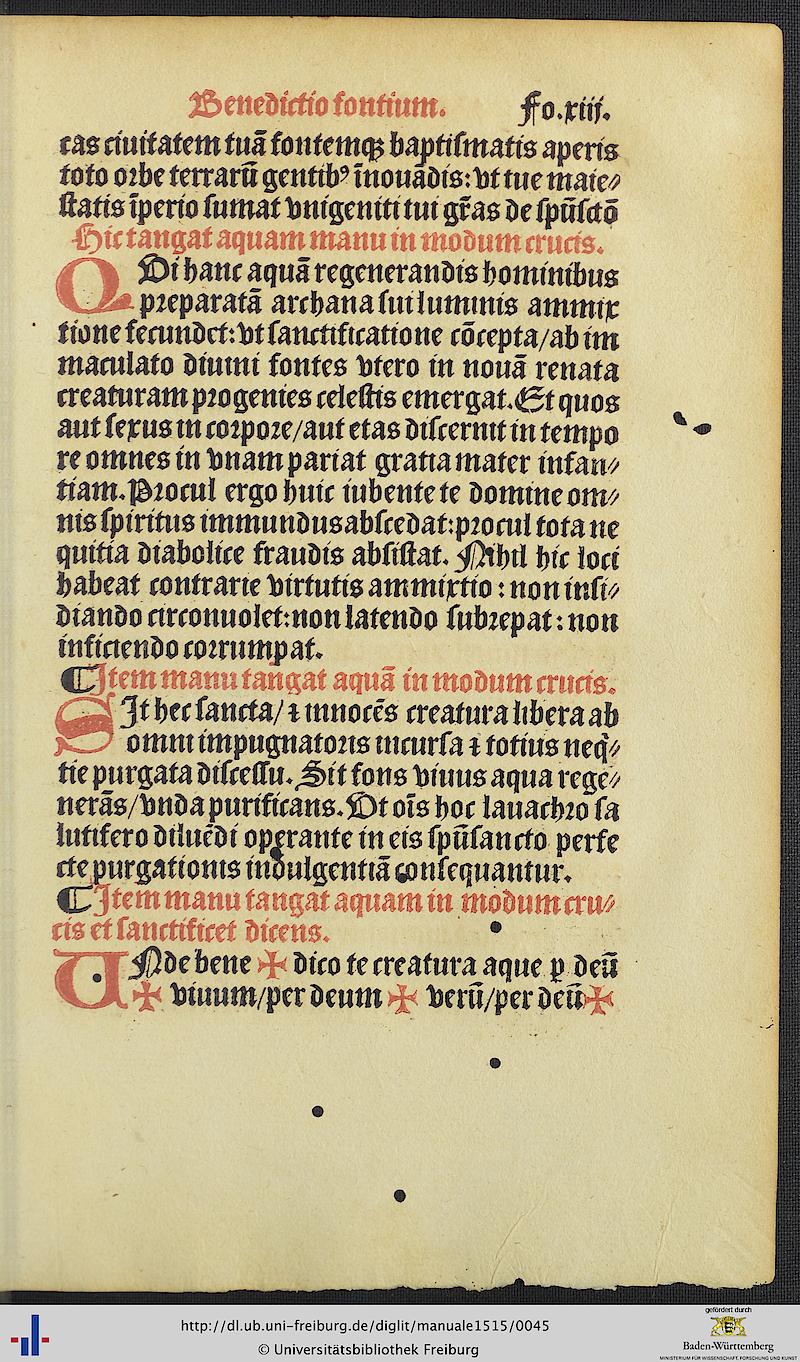 Benedictio fontium. Fo.xiij.
cas ciuitatem tuā fontemqꝫ baptiſmatis aperis
toto orbe terrarū gentibꝰ īnouādis: vt tue maie⸗
ſtatis īperio ſumat vnigeniti tui gr̄as de ſpūſctō
Hic tangat aquam manu in modum crucis.
QVi hanc aquā regenerandis hominibus
preparatā archana ſui luminis ammix
tione fecundet: vt ſanctificatione cōcepta/ab im
maculato diuini fontes vtero in nouā renata
creaturam progenies celeſtis emergat. Et quos
aut ſexus in corpore/aut etas diſcernit in tempo
re omnes in vnam pariat gratia mater infan⸗
tiam. Procul ergo huic iubente te domine om⸗
nis ſpiritus immundus abſcedat: procul tota ne
quitia diabolice fraudis abſiſtat. Nihil hic loci
habeat contrarie virtutis ammixtio: non inſi⸗
diando circonuolet: non latendo ſubrepat: non
inficiendo corrumpat.
¶ Item manu tangat aquā in modum crucis.
SIt hec ſancta/ ⁊ innocēs creatura libera ab
omni impugnatoris incurſa ⁊ totius neq̄⸗
tie purgata diſceſſu. Sit fons viuus aqua rege⸗
nerās/vnda purificans. Vt oīs hoc lauachro ſa
lutifero diluēdi operante in eis ſpūſancto perfe
cte purgationis indulgentiā conſequantur.
¶ Item manu tangat aquam in modum cru⸗
cis et ſanctificet dicens.
UNde bene ✠ dico te creatura aque ꝑ deū
✠ viuum/per deum ✠ verū/per deū ✠
http://dl.ub.uni-freiburg.de/diglit/manuale1515/0045
© Universitätsbibliothek Freiburg
gefördert durch
Baden-Württemberg
MINISTERIUM FÜR WISSENSCHAFT, FORSCHUNG UND KUNST